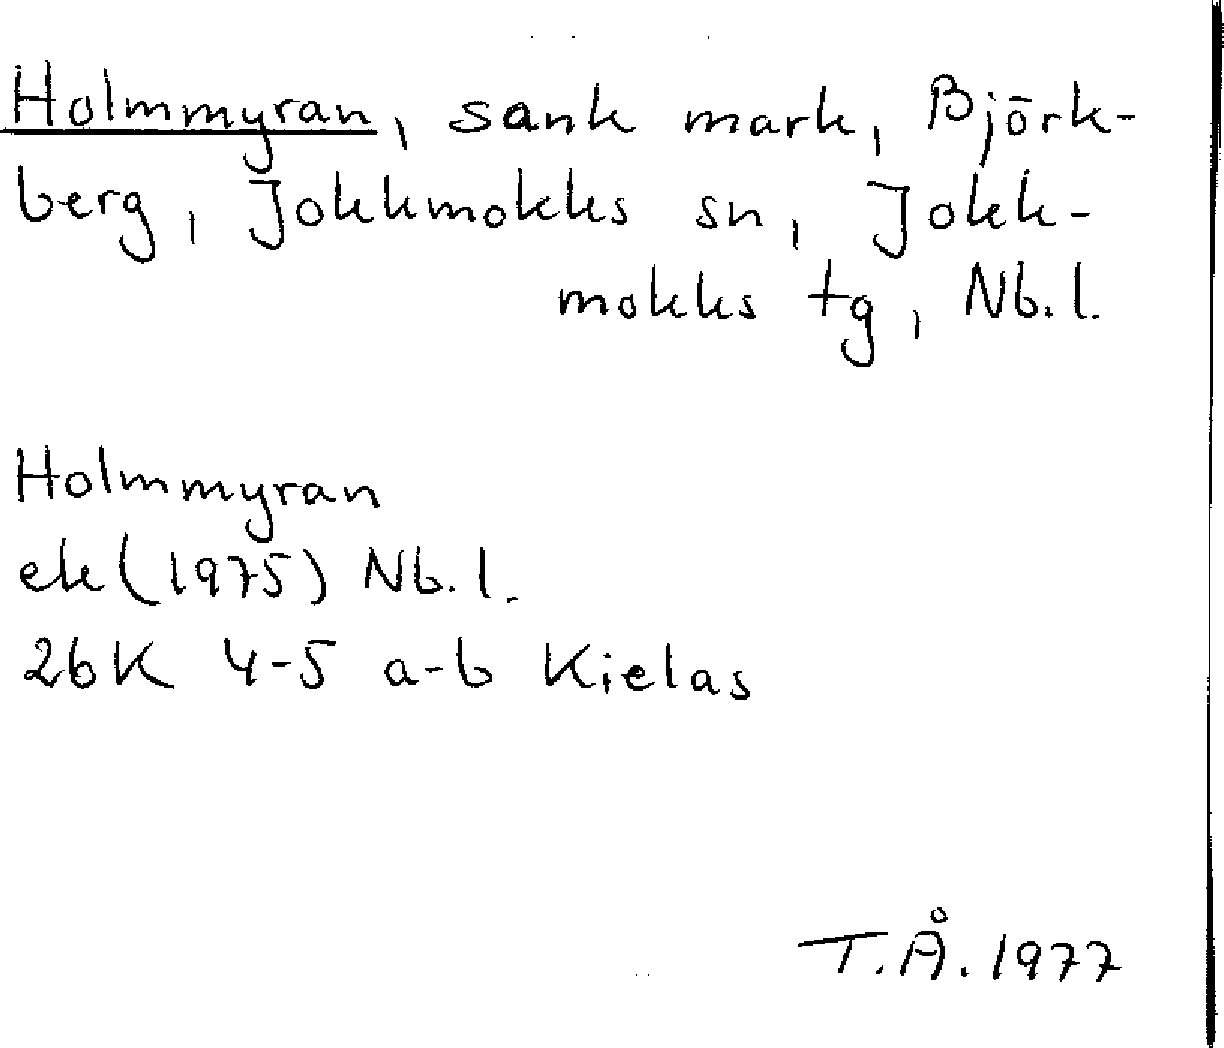 Holmmyran, sank mark, Björk-
berg, Jokkmokks sn, Jokk-
mokks tg, Nb.l.
Holmmyran
ek (1975) Nb.l.
26K 4-5 a-b Kielas
T.Å. 1977